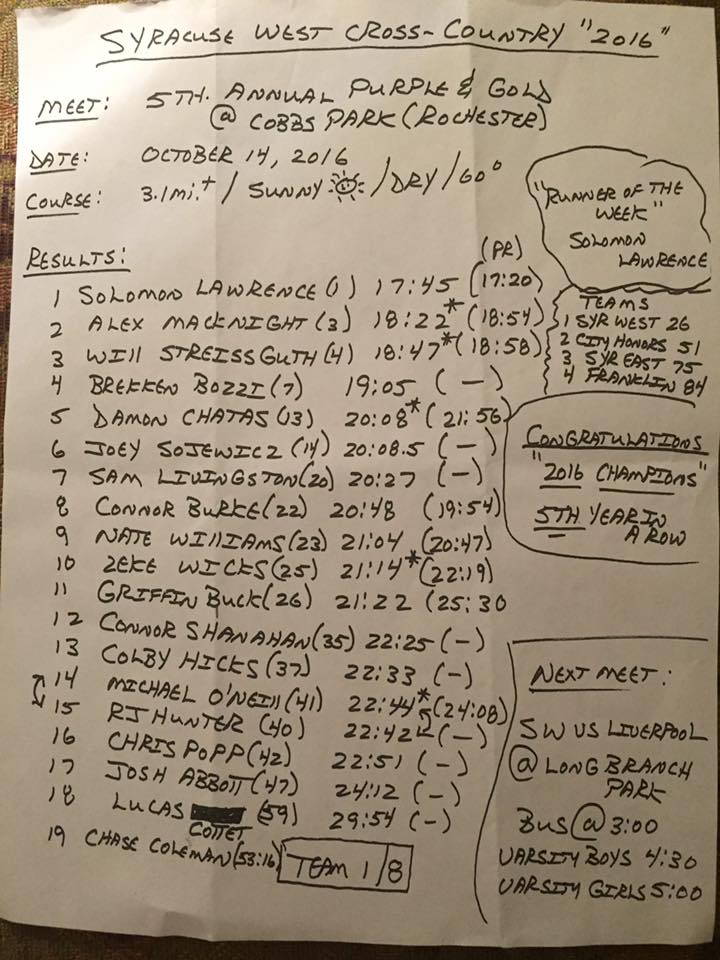 SYRACUSE WEST CROSS-COUNTRY "2016"
MEET: 5TH. ANNUAL PURPLE & GOLD
@ COBBS PARK (ROCHESTER)
DATE: OCTOBER 14, 2016
COURSE: 3.1mi.+ / SUNNY / DRY / 60°
"RUNNER OF THE
WEEK"
SOLOMON
LAWRENCE
RESULTS: (PR)
1 SOLOMON LAWRENCE (1) 17:45 (17:20)
2 ALEX MACKNIGHT (3) 18:22* (18:54)
3 WILL STREISSGUTH (4) 18:47* (18:58)
4 BREKKEN BOZZI (7) 19:05 (-)
5 DAMON CHATAS (13) 20:08* (21:56)
6 JOEY SOJEWICZ (14) 20:08.5 (-)
7 SAM LIVINGSTON (20) 20:27 (-)
8 CONNOR BURKE (22) 20:48 (19:54)
9 NATE WILLIAMS (23) 21:04 (20:47)
10 ZEKE WICKS (25) 21:14* (22:19)
11 GRIFFIN BUCK (26) 21:22 (25:30
12 CONNOR SHANAHAN (35) 22:25 (-)
13 COLBY HICKS (37) 22:33 (-)
14 MICHAEL O'NEILL (41) 22:44* (24:08)
15 RJ HUNTER (40) 22:42 (-)
16 CHRIS POPP (42) 22:51 (-)
17 JOSH ABBOTT (47) 24:12 (-)
18 LUCAS (59) 29:54 (-)
COTTET
19 CHASE COLEMAN (53:16)
TEAM 1/8
TEAMS
1 SYR WEST 26
2 CITY HONORS 51
3 SYR EAST 75
4 FRANKLIN 84
CONGRATULATIONS
"2016 CHAMPIONS"
5TH YEAR IN
A ROW
NEXT MEET:
SW VS LIVERPOOL
@ LONG BRANCH
PARK
BUS @ 3:00
VARSITY BOYS 4:30
VARSITY GIRLS 5:00